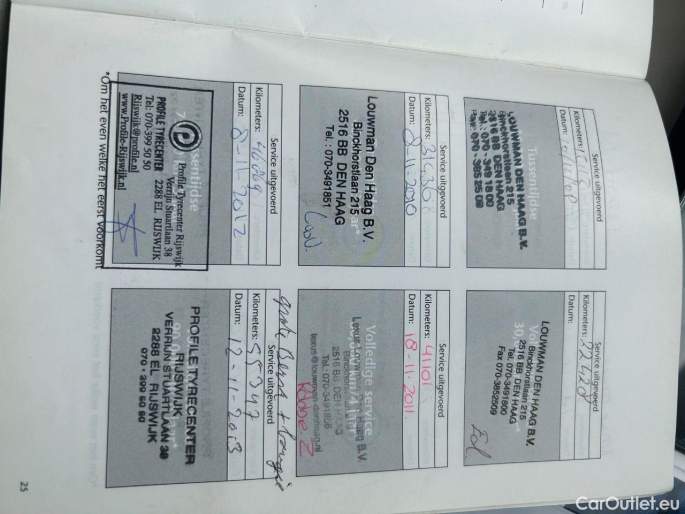 Service uitgevoerd
Kilometers:
Datum:
Tussentijdse
LOUWMAN DEN HAAG B.V.
Binckhorstlaan 215
2516 BB DEN HAAG
Tel.: 070 - 349 1800
Fax: 070 - 385 25 09
Service uitgevoerd
Kilometers: 22428
Datum:
LOUWMAN DEN HAAG B.V.
Binckhorstlaan 215
2516 BB DEN HAAG
Tel. 070-3491800
Fax 070-3852509
Service uitgevoerd
Kilometers:
Datum: 2-11-2010
Louwman Den Haag B.V.
Binckhorstlaan 215
2516 BB DEN HAAG
Tel.: 070-3491851
Service uitgevoerd
Kilometers: 41101
Datum: 18-11-2011
Volledige service
2516 BB DEN HAAG
Service uitgevoerd
Kilometers: 46769
Datum: 2-11-2012
Tussentijdse
Profile Tyrecenter Rijswijk
Verrijn Stuartlaan 38
2288 EL RIJSWIJK
PROFILE TYRECENTER
Tel: 070-399 50 50
Rijswijk@profile.nl
www.Profile-Rijswijk.nl
grote Beurt +
Service uitgevoerd
Kilometers: 55347
Datum: 12-11-2013
PROFILE TYRECENTER
RIJSWIJK
VERRIJN STUARTLAAN 38
2288 EL RIJSWIJK
070 - 399 50 50
*Om het even welke het eerst voorkomt
25
CarOutlet.eu